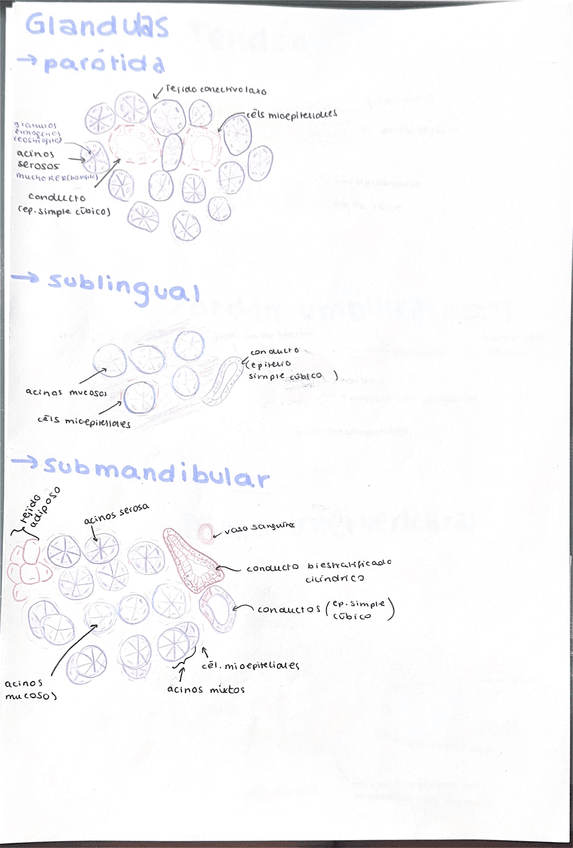 Glandulas
→ parótida
Tejido conectivo laxo
céls mioepiteliales
granulos
acinos
serosos
mucho RER (basofilo)
conducto
(ep. simple cúbico)
→ sublingual
conducto
(epitelio
simple cúbico)
acinos mucosos
céls mioepiteliales
→ submandibular
tejido
adiposo
acinos serosa
vaso sanguíneo
conducto biestratificado
cilíndrico
conductos (ep. simple
cúbico)
cél. mioepiteliales
acinos mixtos
acinos
mucosos)